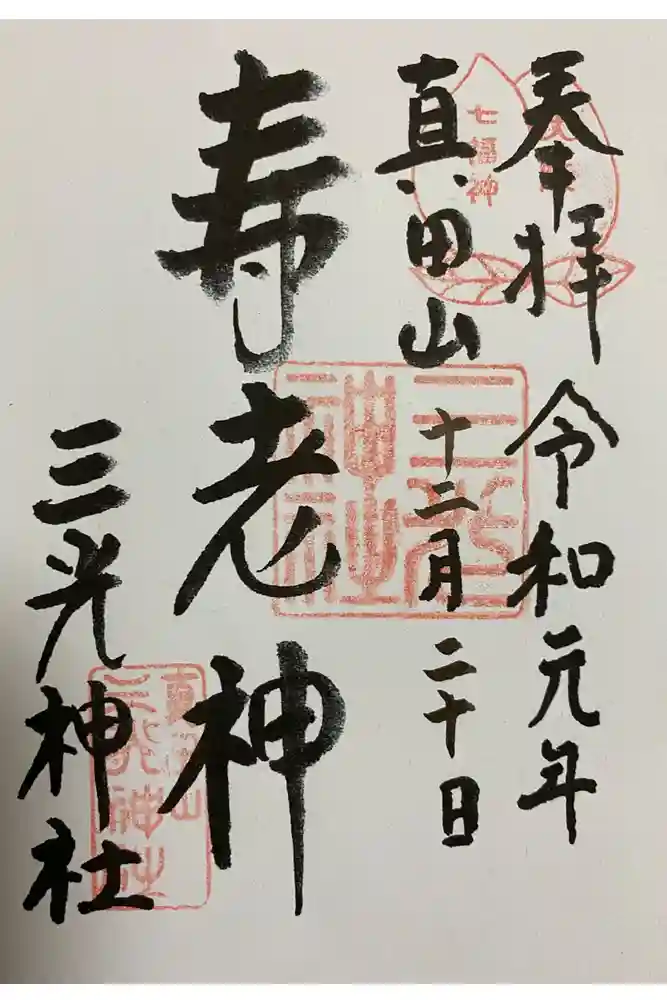 奉拝
令和元年
真田山
十二月二十日
寿老神
三光神社
七福神
三光神社
真田山
三光神社